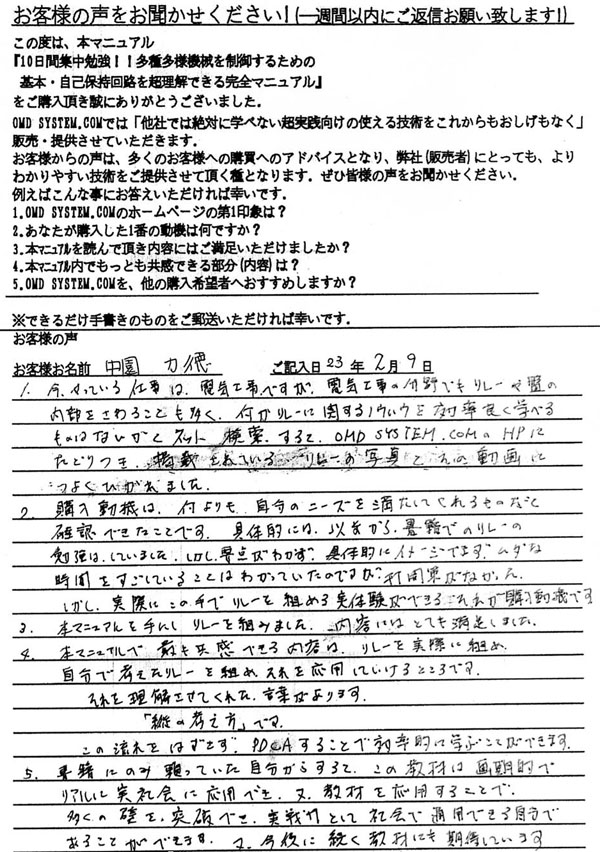 お客様の声をお聞かせください！(一週間以内にご返信お願い致します！)
この度は、本マニュアル
『10日間集中勉強！！多種多様機械を制御するための
基本・自己保持回路を超理解できる完全マニュアル』
をご購入頂き誠にありがとうございました。
OMD SYSTEM.COMでは「他社では絶対に学べない超実践向けの使える技術をこれからもおしげもなく」
販売・提供させていただきます。
お客様からの声は、多くのお客様への購買へのアドバイスとなり、弊社(販売者)にとっても、より
わかりやすい技術をご提供させて頂く種となります。ぜひ皆様の声をお聞かせください。
例えばこんな事にお答えいただければ幸いです。
1.OMD SYSTEM.COMのホームページの第1印象は？
2.あなたが購入した1番の動機は何ですか？
3.本マニュアルを読んで頂き内容にはご満足いただけましたか？
4.本マニュアル内でもっとも共感できる部分(内容)は？
5.OMD SYSTEM.COMを、他の購入希望者へおすすめしますか？
※できるだけ手書きのものをご郵送いただければ幸いです。
お客様の声
お客様お名前 中園 力徳 ご記入日 23年 2月 9日
1. 今、やっている仕事は、電気工事ですが、電気工事の分野でもリレーや盤の
内部をさわることも多く、何かリレーに関するノウハウを効率良く学べる
ものはないかと ネット 検索 すると、OMD SYSTEM.COMのHPに
たどりつき、掲載されている リレーの写真とその動画に
つよくひかれました。
2. 購入動機は、何よりも、自分のニーズを満たしてくれるものだと
確認できたことです。具体的には、以前から、書籍でのリレーの
勉強は、していました。しかし、要点がわからず、具体的にイメージできず、ムダな
時間をすごしていることはわかっていたのですが、打開策がなかった。
しかし、実際にこの手でリレーを組める実体験ができるこれが購入動機です
3. 本マニュアルを手にし リレーを組みました。内容にはとても満足しました。
4. 本マニュアルで 最も共感できる内容は、リレーを実際に組め
自分で考えたリレーを組め それを応用していけるところです。
それを理解させてくれた 言葉があります。
「縦の考え方」です。
この流れをはずさず、PDCAすることで効率的に学ぶことができます。
5. 書籍にのみ頼っていた自分からすると、この教材は画期的で
リアルに実社会に応用でき、又、教材を応用することで、
多くの壁を、突破でき、実戦力として社会で通用できる自分で
あることができます。又、今後に続く教材にも期待しています